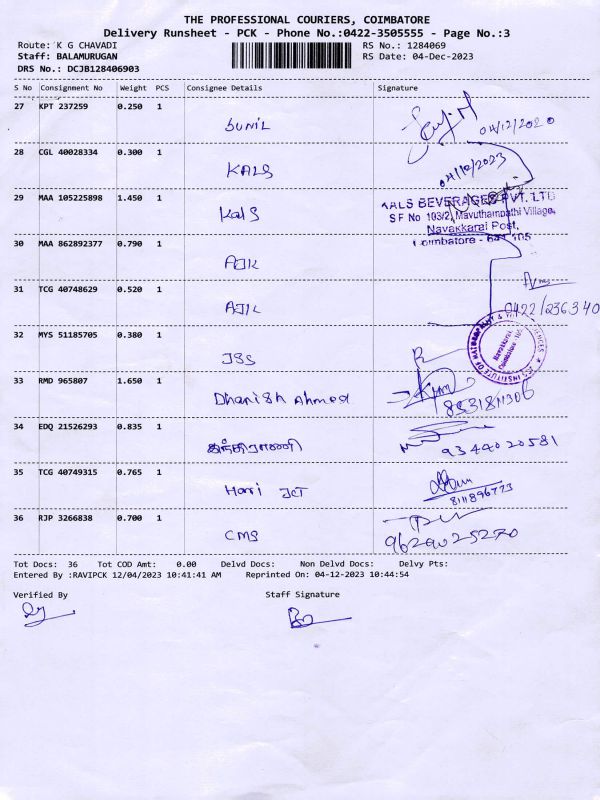 THE PROFESSIONAL COURIERS, COIMBATORE
Delivery Runsheet - PCK - Phone No.:0422-3505555 - Page No.:3
Route: K G CHAVADI RS No.: 1284069
Staff: BALAMURUGAN RS Date: 04-Dec-2023
DRS No.: DCJB128406903
S No Consignment No Weight PCS Consignee Details Signature
27 KPT 237259 0.250 1
SUNIL 04/12/2020
28 CGL 40028334 0.300 1
KALS 04/12/2023
29 MAA 105225898 1.450 1
KALS BEVERAGES PVT. LTD
Kals S F No 103/2, Mavuthampathi Village,
Navakkarai Post,
30 MAA 862892377 0.790 1 Coimbatore - 641 105
AJK
31 TCG 40748629 0.520 1
AJK 0422/236340
32 MYS 51185705 0.380 1
JSS
33 RMD 965807 1.650 1
Dhanish Ahmed
34 EDQ 21526293 0.835 1
9344020581
35 TCG 40749315 0.765 1
Hari JCT 8111896773
36 RJP 3266838 0.700 1
CMS 9629025270
Tot Docs: 36 Tot COD Amt: 0.00 Delvd Docs: Non Delvd Docs: Delvy Pts:
Entered By :RAVIPCK 12/04/2023 10:41:41 AM Reprinted On: 04-12-2023 10:44:54
Verified By Staff Signature